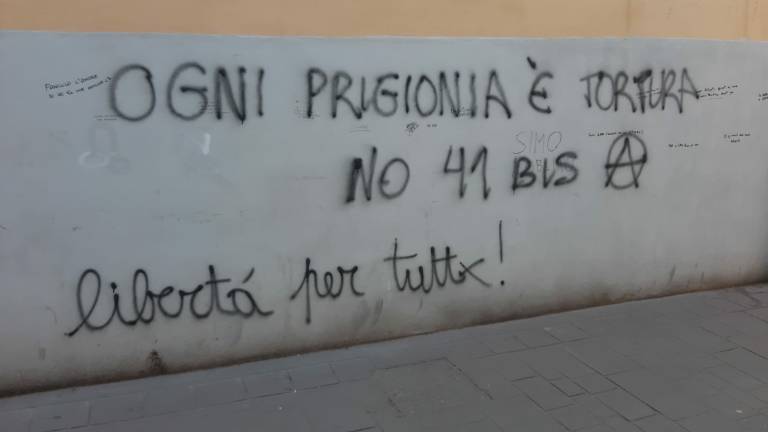 OGNI PRIGIONIA È TORTURA
NO 41 BIS Ⓐ
libertá per tuttx!
SIMO